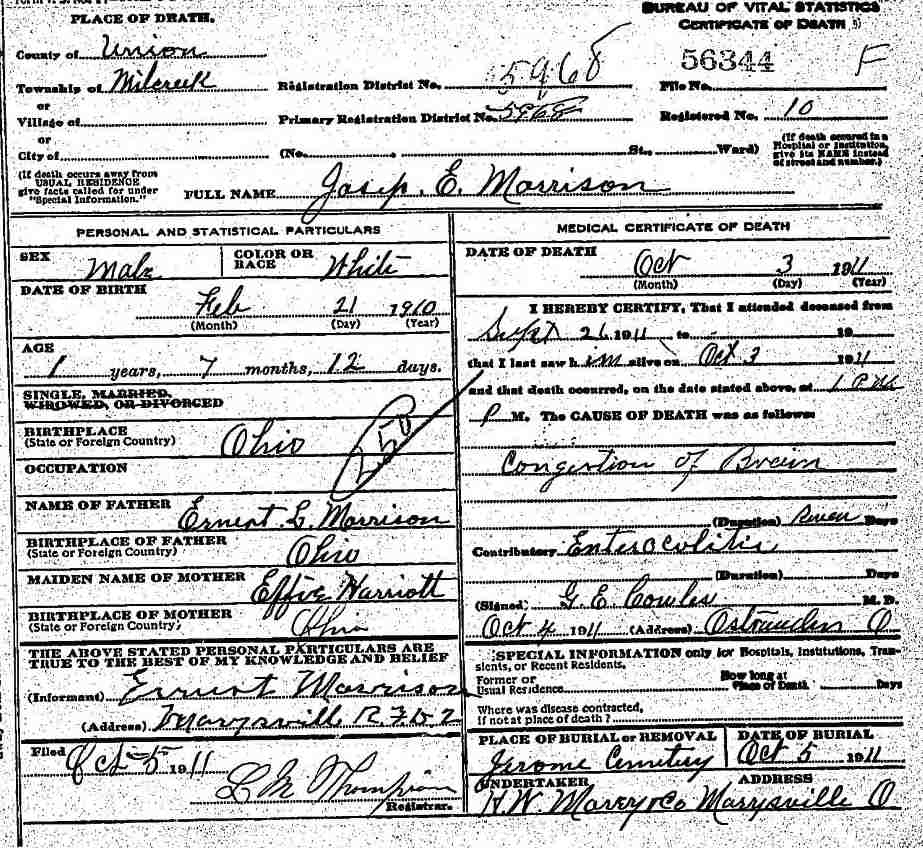 PLACE OF DEATH.
BUREAU OF VITAL STATISTICS
CERTIFICATE OF DEATH
County of Union
56344 F
Township of Milcreek Registration District No. 5968 File No.
or
Village of Primary Registration District No. 5968 Registered No. 10
or
City of (No. , St., Ward) (If death occured in a Hospital or Institution, give its NAME instead of street and number.)
(If death occurs away from USUAL RESIDENCE give facts called for under "Special Information.")
FULL NAME Josep. E. Morrison
PERSONAL AND STATISTICAL PARTICULARS
SEX Male COLOR OR RACE White
DATE OF BIRTH
Feb 21 1910
(Month) (Day) (Year)
AGE
1 years, 7 months, 12 days.
SINGLE, MARRIED,
WIDOWED, OR DIVORCED
BIRTHPLACE
(State or Foreign Country) Ohio
250
OCCUPATION
NAME OF FATHER Ernest L. Morrison
BIRTHPLACE OF FATHER
(State or Foreign Country) Ohio
MAIDEN NAME OF MOTHER Effie Harriott
BIRTHPLACE OF MOTHER
(State or Foreign Country) Ohio
THE ABOVE STATED PERSONAL PARTICULARS ARE
TRUE TO THE BEST OF MY KNOWLEDGE AND BELIEF
(Informant) Ernest Morrison
(Address) Marysvill R.F.D. 2
Filed Oct 5 1911
L M Thompson
Registrar.
MEDICAL CERTIFICATE OF DEATH
DATE OF DEATH
Oct 3 1911
(Month) (Day) (Year)
I HEREBY CERTIFY, That I attended deceased from
Sept 26 1911 to 19
that I last saw him alive on Oct 3 1911
and that death occurred, on the date stated above, at 1 P.M.
P M. The CAUSE OF DEATH was as follows:
Congestion of Brain
(Duration) Days
Contributory Enterocolitis
(Duration) Days
(Signed) G. E. Cowles M.D.
Oct 4 1911 (Address) Ostranders O
SPECIAL INFORMATION only for Hospitals, Institutions, Tran-
sients, or Recent Residents.
Former or
Usual Residence
How long at
Place of Death Days
Where was disease contracted,
If not at place of death?
PLACE OF BURIAL or REMOVAL DATE OF BURIAL
Jerome Cemetery Oct 5 1911
UNDERTAKER ADDRESS
H.W. Marysville O